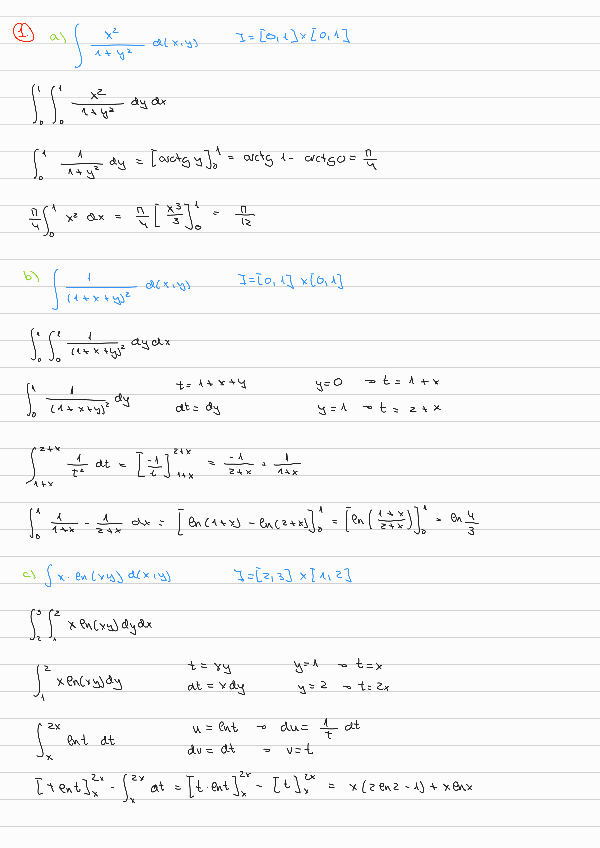 1. a) ∫ x²/(1+y²) d(x,y) I=[0,1]×[0,1]
∫₀¹ ∫₀¹ x²/(1+y²) dy dx
∫₀¹ 1/(1+y²) dy = [arctg y]₀¹ = arctg 1 - arctg 0 = π/4
π/4 ∫₀¹ x² dx = π/4 [x³/3]₀¹ = π/12
b) ∫ 1/(1+x+y)² d(x,y) I=[0,1]×[0,1]
∫₀¹ ∫₀¹ 1/(1+x+y)² dy dx
∫₀¹ 1/(1+x+y)² dy t=1+x+y y=0 → t=1+x
dt=dy y=1 → t=2+x
∫_{1+x}^{2+x} 1/t² dt = [-1/t]_{1+x}^{2+x} = -1/(2+x) + 1/(1+x)
∫₀¹ 1/(1+x) - 1/(2+x) dx = [ln(1+x) - ln(2+x)]₀¹ = [ln((1+x)/(2+x))]₀¹ = ln 4/3
c) ∫ x·ln(xy) d(x,y) I=[2,3]×[1,2]
∫₂³ ∫₁² x ln(xy) dy dx
∫₁² x ln(xy) dy t=xy y=1 → t=x
dt=x dy y=2 → t=2x
∫ₓ^{2x} ln t dt u=ln t → du=1/t dt
dv=dt → v=t
[t ln t]ₓ^{2x} - ∫ₓ^{2x} dt = [t·ln t]ₓ^{2x} - [t]ₓ^{2x} = x(2ln2-1)+x ln x